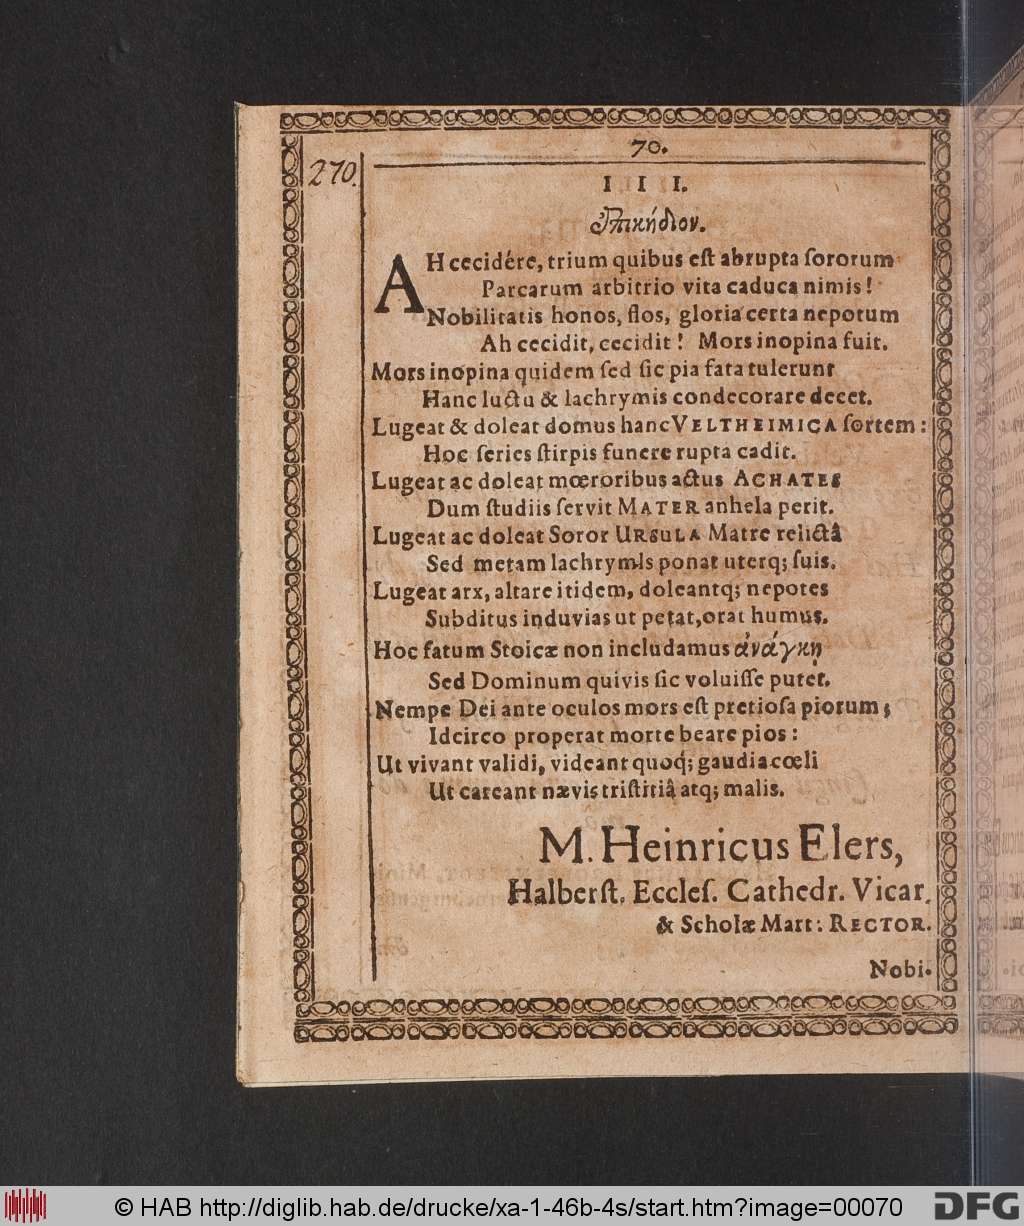 70.
270.
I I I.
Ἐπικήδιον.
AH cecidére, trium quibus eſt abrupta ſororum
Parcarum arbitrio vita caduca nimis!
Nobilitatis honos, flos, gloria certa nepotum
Ah cecidit, cecidit! Mors inopina fuit.
Mors inopina quidem ſed ſic pia fata tulerunt
Hanc luctu & lachrymis condecorare decet.
Lugeat & doleat domus hanc VELTHEIMICA ſortem:
Hoc ſeries ſtirpis funere rupta cadit.
Lugeat ac doleat mœroribus actus ACHATES
Dum ſtudiis ſervit MATER anhela perit.
Lugeat ac doleat Soror URSULA Matre relictâ
Sed metam lachrymis ponat uterq; ſuis.
Lugeat arx, altare itidem, doleantq; nepotes
Subditus induvias ut petat, orat humus.
Hoc fatum Stoicæ non includamus ἀνάγκῃ
Sed Dominum quivis ſic voluiſſe putet.
Nempe Dei ante oculos mors eſt pretioſa piorum;
Idcirco properat morte beare pios:
Ut vivant validi, videant quoq́; gaudia cœli
Ut careant nævis triſtitiâ atq; malis.
M. Heinricus Elers,
Halberſt. Eccleſ. Cathedr. Vicar.
& Scholæ Mart: RECTOR.
Nobi-
© HAB http://diglib.hab.de/drucke/xa-1-46b-4s/start.htm?image=00070
DFG